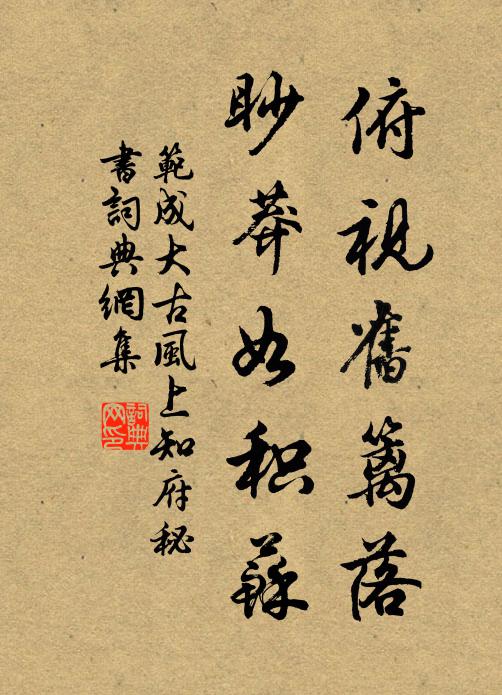 俯視舊籬落
眇莽如積蘇
範成大古風上知府秘
書詞典網集
詞典
网印